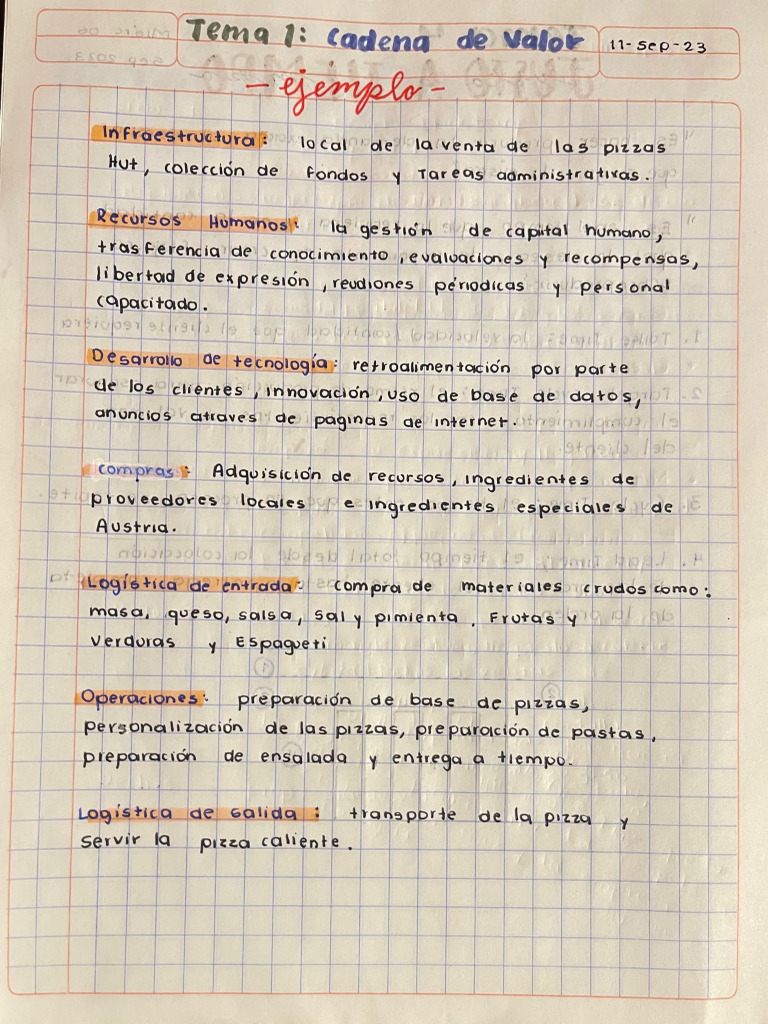 Tema 1: cadena de valor
11-sep-23
-ejemplo-
Infraestructura: local de la venta de las pizzas
Hut, colección de fondos y Tareas administrativas.
Recursos Humanos: la gestión de capital humano,
trasferencia de conocimiento, evaluaciones y recompensas,
libertad de expresión, reudiones périodicas y personal
capacitado.
Desarrollo de tecnología: retroalimentación por parte
de los clientes, innovación, uso de base de datos,
anuncios atraves de paginas de internet.
compras: Adquisición de recursos, ingredientes de
proveedores locales e ingredientes especiales de
Austria.
Logística de entrada: compra de materiales crudos como:
masa, queso, salsa, sal y pimienta, Frutas y
verduras y Espagueti
Operaciones: preparación de base de pizzas,
personalización de las pizzas, preparación de pastas,
preparación de ensalada y entrega a tiempo.
Logística de salida: transporte de la pizza y
servir la pizza caliente.